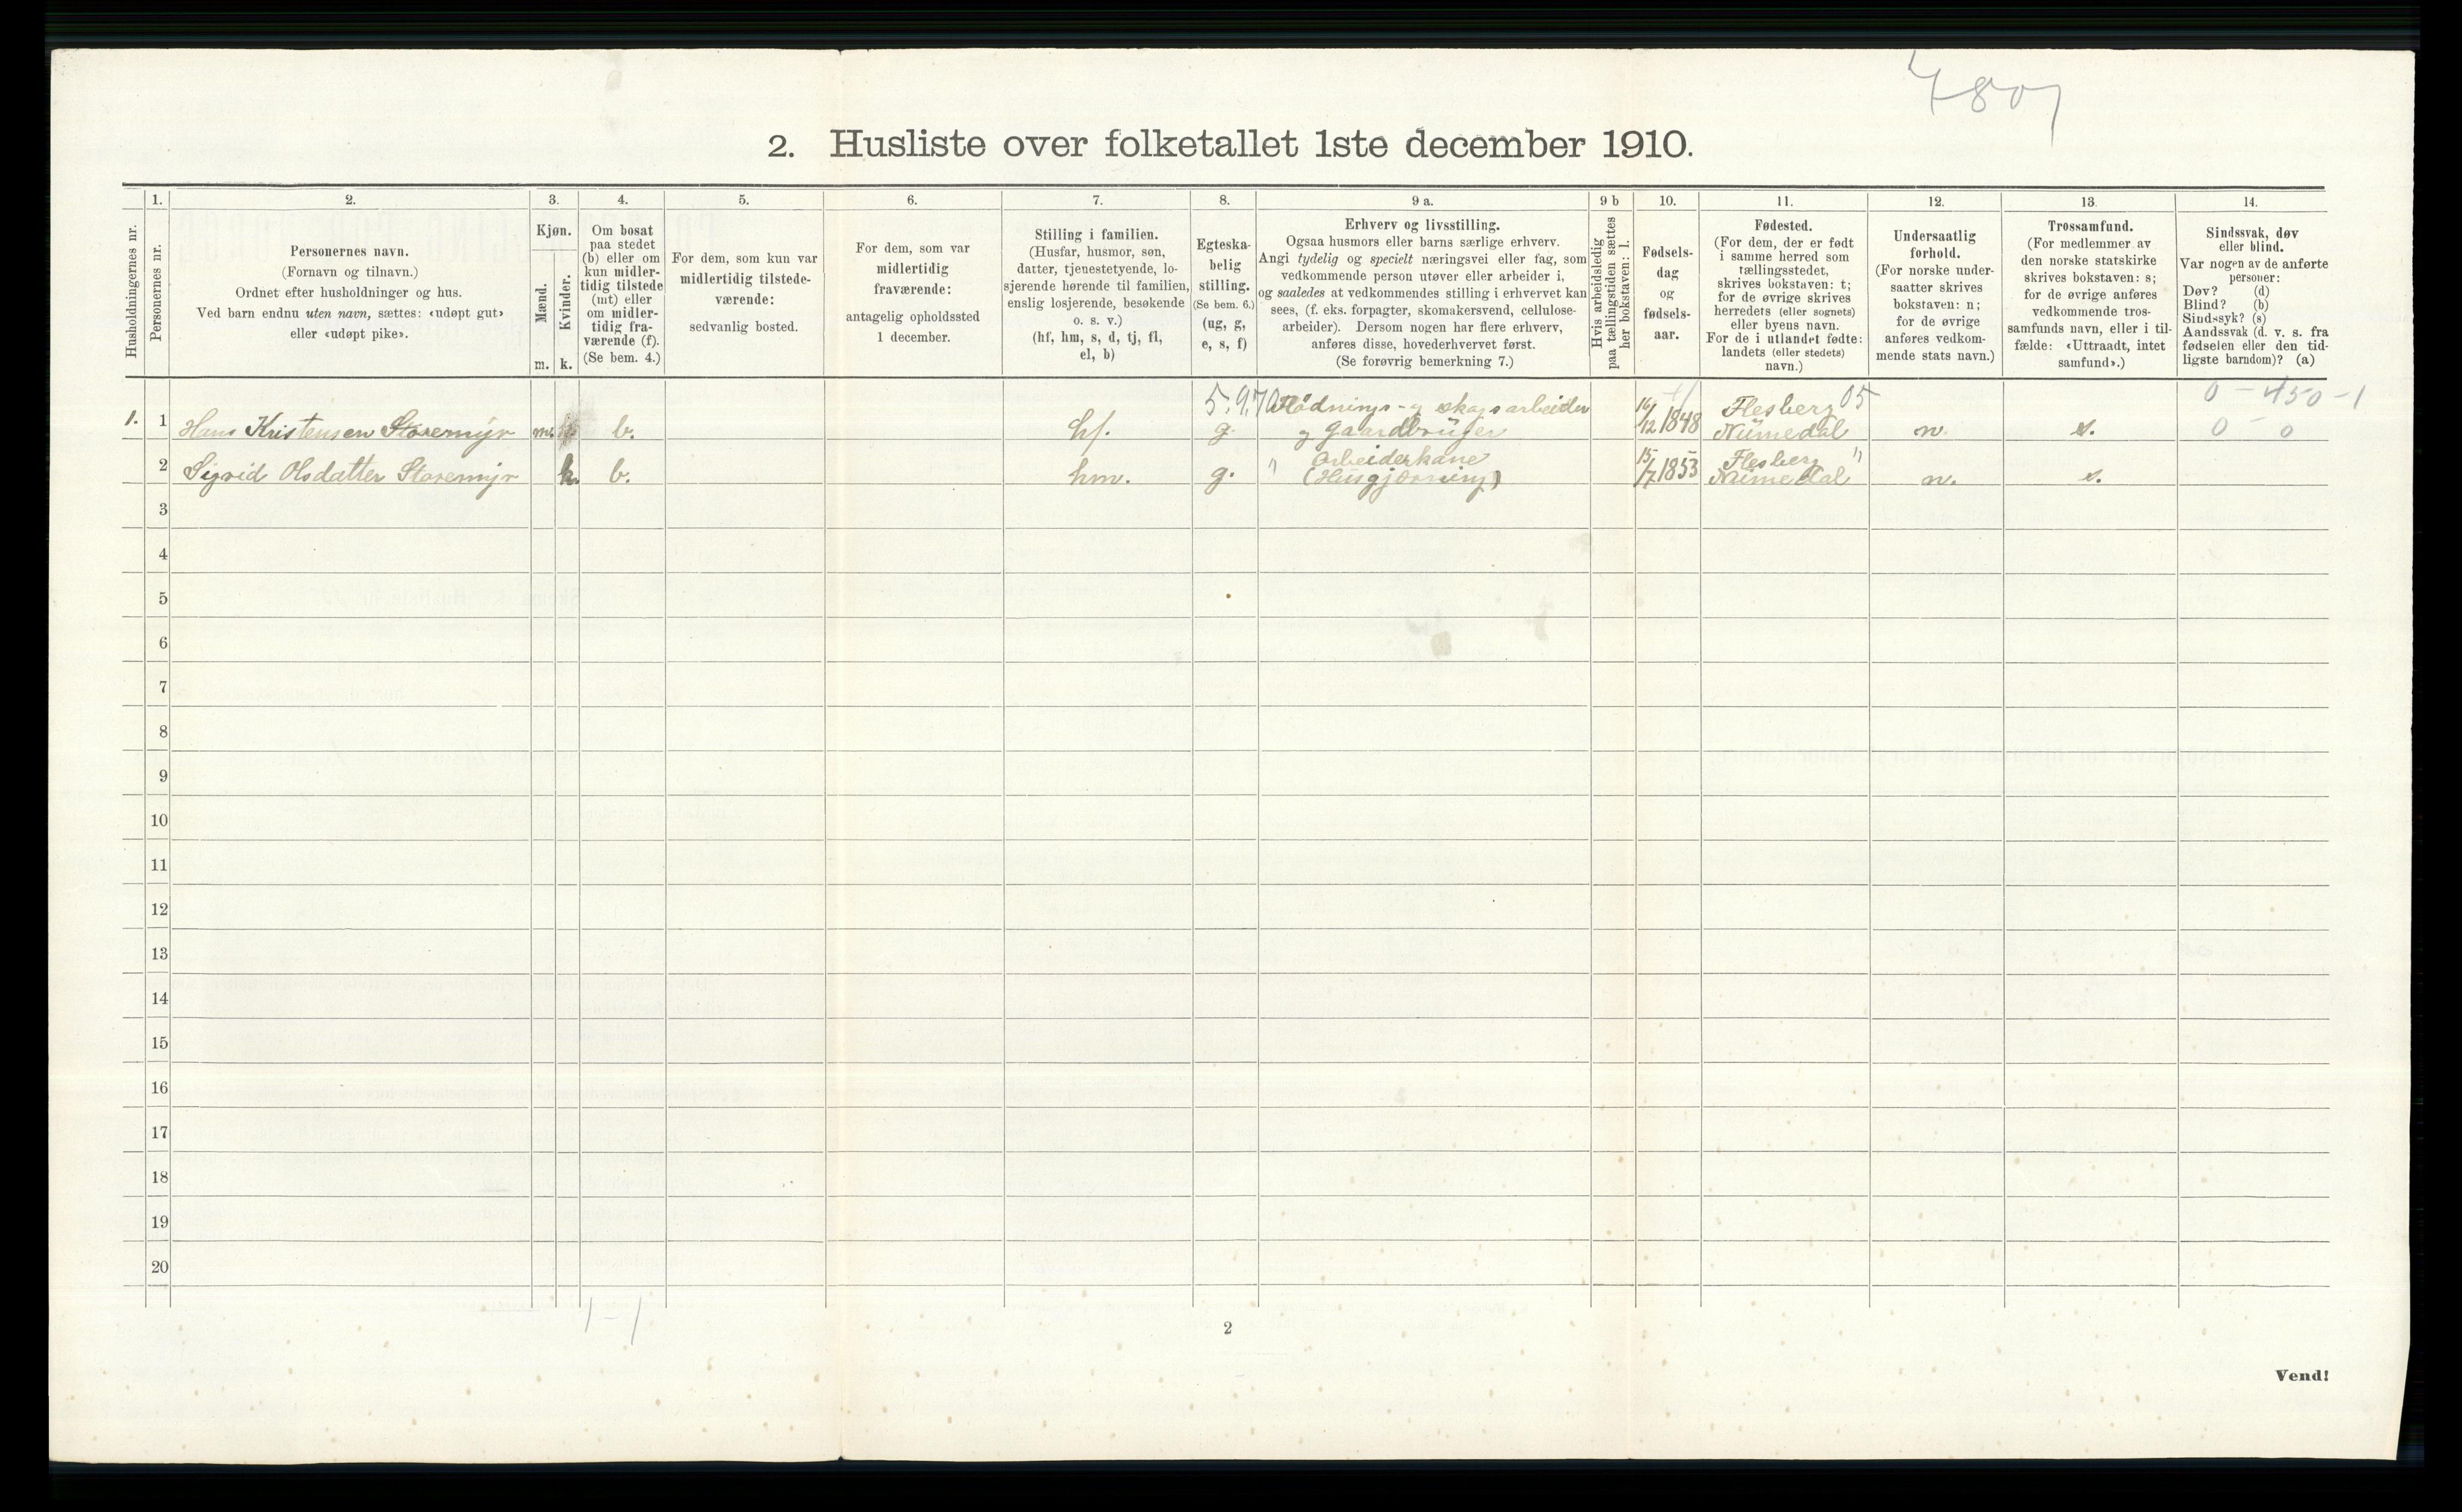 4801
2. Husliste over folketallet 1ste december 1910.
Husholdningernes nr.
1.
Personernes nr.
2.
Personernes navn.
(Fornavn og tilnavn.)
Ordnet efter husholdninger og hus.
Ved barn endnu uten navn, sættes: «udøpt gut»
eller «udøpt pike».
3.
Kjøn.
Mænd.
Kvinder.
m. k.
4.
Om bosat
paa stedet
(b) eller om
kun midler-
tidig tilstede
(mt) eller
om midler-
tidig fra-
værende (f).
(Se bem. 4.)
5.
For dem, som kun var
midlertidig tilstede-
værende:
sedvanlig bosted.
6.
For dem, som var
midlertidig
fraværende:
antagelig opholdssted
1 december.
7.
Stilling i familien.
(Husfar, husmor, søn,
datter, tjenestetyende, lo-
sjerende hørende til familien,
enslig losjerende, besøkende
o. s. v.)
(hf, hm, s, d, tj, fl,
el, b)
8.
Egteska-
belig
stilling.
(Se bem. 6.)
(ug, g,
e, s, f)
9 a.
Erhverv og livsstilling.
Ogsaa husmors eller barns særlige erhverv.
Angi tydelig og specielt næringsvei eller fag, som
vedkommende person utøver eller arbeider i,
og saaledes at vedkommendes stilling i erhvervet kan
sees, (f. eks. forpagter, skomakersvend, cellulose-
arbeider). Dersom nogen har flere erhverv,
anføres disse, hovederhvervet først.
(Se forøvrig bemerkning 7.)
9 b
Hvis arbeidsledig
paa tællingstiden sættes
her bokstaven: l.
10.
Fødsels-
dag
og
fødsels-
aar.
11.
Fødested.
(For dem, der er født
i samme herred som
tællingsstedet,
skrives bokstaven: t;
for de øvrige skrives
herredets (eller sognets)
eller byens navn.
For de i utlandet fødte:
landets (eller stedets)
navn.)
12.
Undersaatlig
forhold.
(For norske under-
saatter skrives
bokstaven: n;
for de øvrige
anføres vedkom-
mende stats navn.)
13.
Trossamfund.
(For medlemmer av
den norske statskirke
skrives bokstaven: s;
for de øvrige anføres
vedkommende tros-
samfunds navn, eller i til-
fælde: «Uttraadt, intet
samfund».)
14.
Sindssvak, døv
eller blind.
Var nogen av de anførte
personer:
Døv? (d)
Blind? (b)
Sindssyk? (s)
Aandssvak (d. v. s. fra
fødselen eller den tid-
ligste barndom)? (a)
5.9.70 05 0 - 450 -1
1. 1 Hans Kristensen Storemyr m. b. hf. g. Flødnings- og skogsarbeider og gaardbruger 16/12 1848 Flesberg Numedal n. s. 0 - 0
2 Sigrid Olsdatter Storemyr k. b. hm. g. " Arbeiderkone (Husgjerning) 15/7 1853 Flesberg " Numedal n. s.
3
4
5
6
7
8
9
10
11
12
13
14
15
16
17
18
19
20
1 - 1
2
Vend!